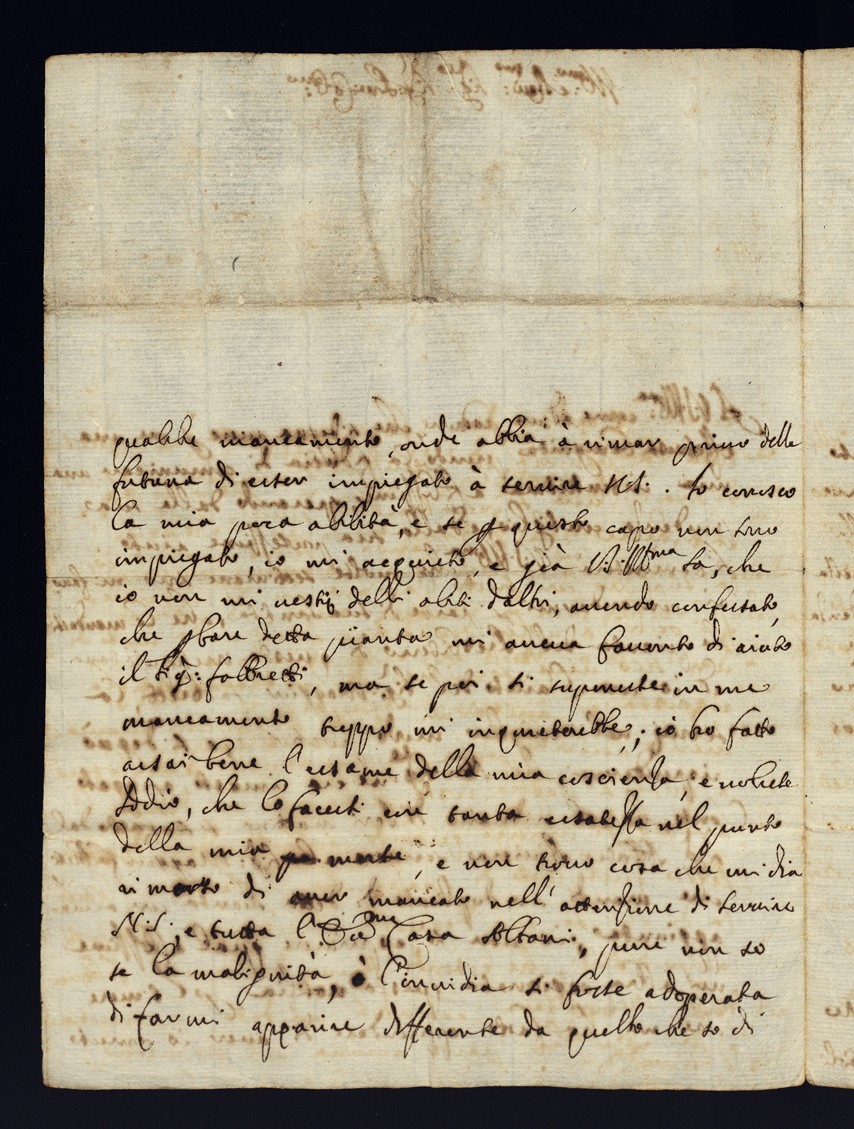 qualche mancamento, onde abbia à rimar privo della
fortuna di esser impiegato à servire N.S. . Io conosco
la mia poca abilità, e se p questo capo non sono
impiegato, io mi acquieto, e già V.S. Illma sa, che
io non mi vestij delli abiti d'altri, avendo confessato,
che p fare detta pianta mi aveva favorito di aiuto
il Sig: fabbretti, ma se poi si supponesse in me
mancamento troppo mi inquieterebbe; io ho fatto
assai bene l'esame della mia coscienza, e volesse
Iddio, che lo facessi con tanta esatezza nel punto
della mia morte, e non trovo cosa che mi dia
rimorso di aver mancato nell'attenzione di servire
N.S., e tutta l' Casa Albani, pure non so
se la malignità, ò l'invidia si fosse adoperata
di farmi apparire differente da quello che so di